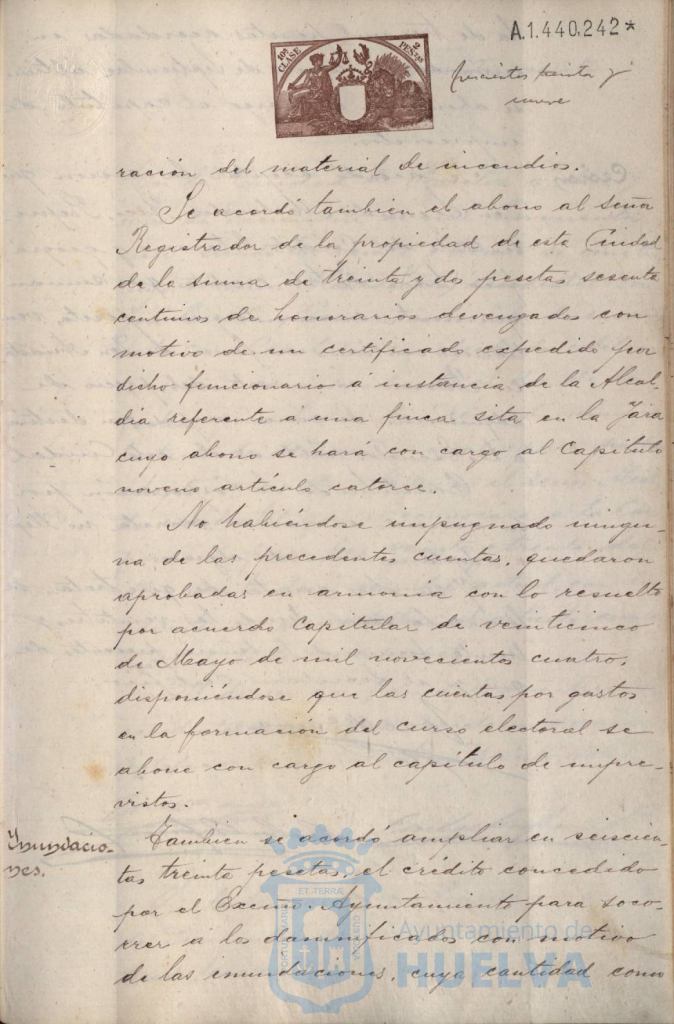 A.1.440.242*
10ª CLASE
2 PESETAS
trescientos treinta y
nueve
ración del material de incendios.
Se acordó tambien el abono al señor
Registrador de la propiedad de esta Ciudad
de la suma de treinta y dos pesetas sesenta
centimos de honorarios devengados con
motivo de un certificado expedido por
dicho funcionario á instancia de la Alcal-
dia referente á una finca sita en la Jara
cuyo abono se hará con cargo al Capitulo
noveno artículo catorce.
No habiéndose impugnado ningu-
na de las precedentes cuentas, quedaron
aprobadas en armonia con lo resuelto
por acuerdo Capitular de veinticinco
de Mayo de mil novecientos cuatro,
disponiéndose que las cuentas por gastos
en la formación del curso electoral se
abone con cargo al capitulo de impre-
vistos.
Inundacio-
nes.
Tambien se acordó ampliar en seiscien-
tas treinta pesetas, el crédito concedido
por el Excmo. Ayuntamiento para soco-
rrer a los damnificados con motivo
de las inundaciones, cuya cantidad como
PORTUS MARIS
ET TERRÆ
CUSTODIA
Ayuntamiento de
HUELVA